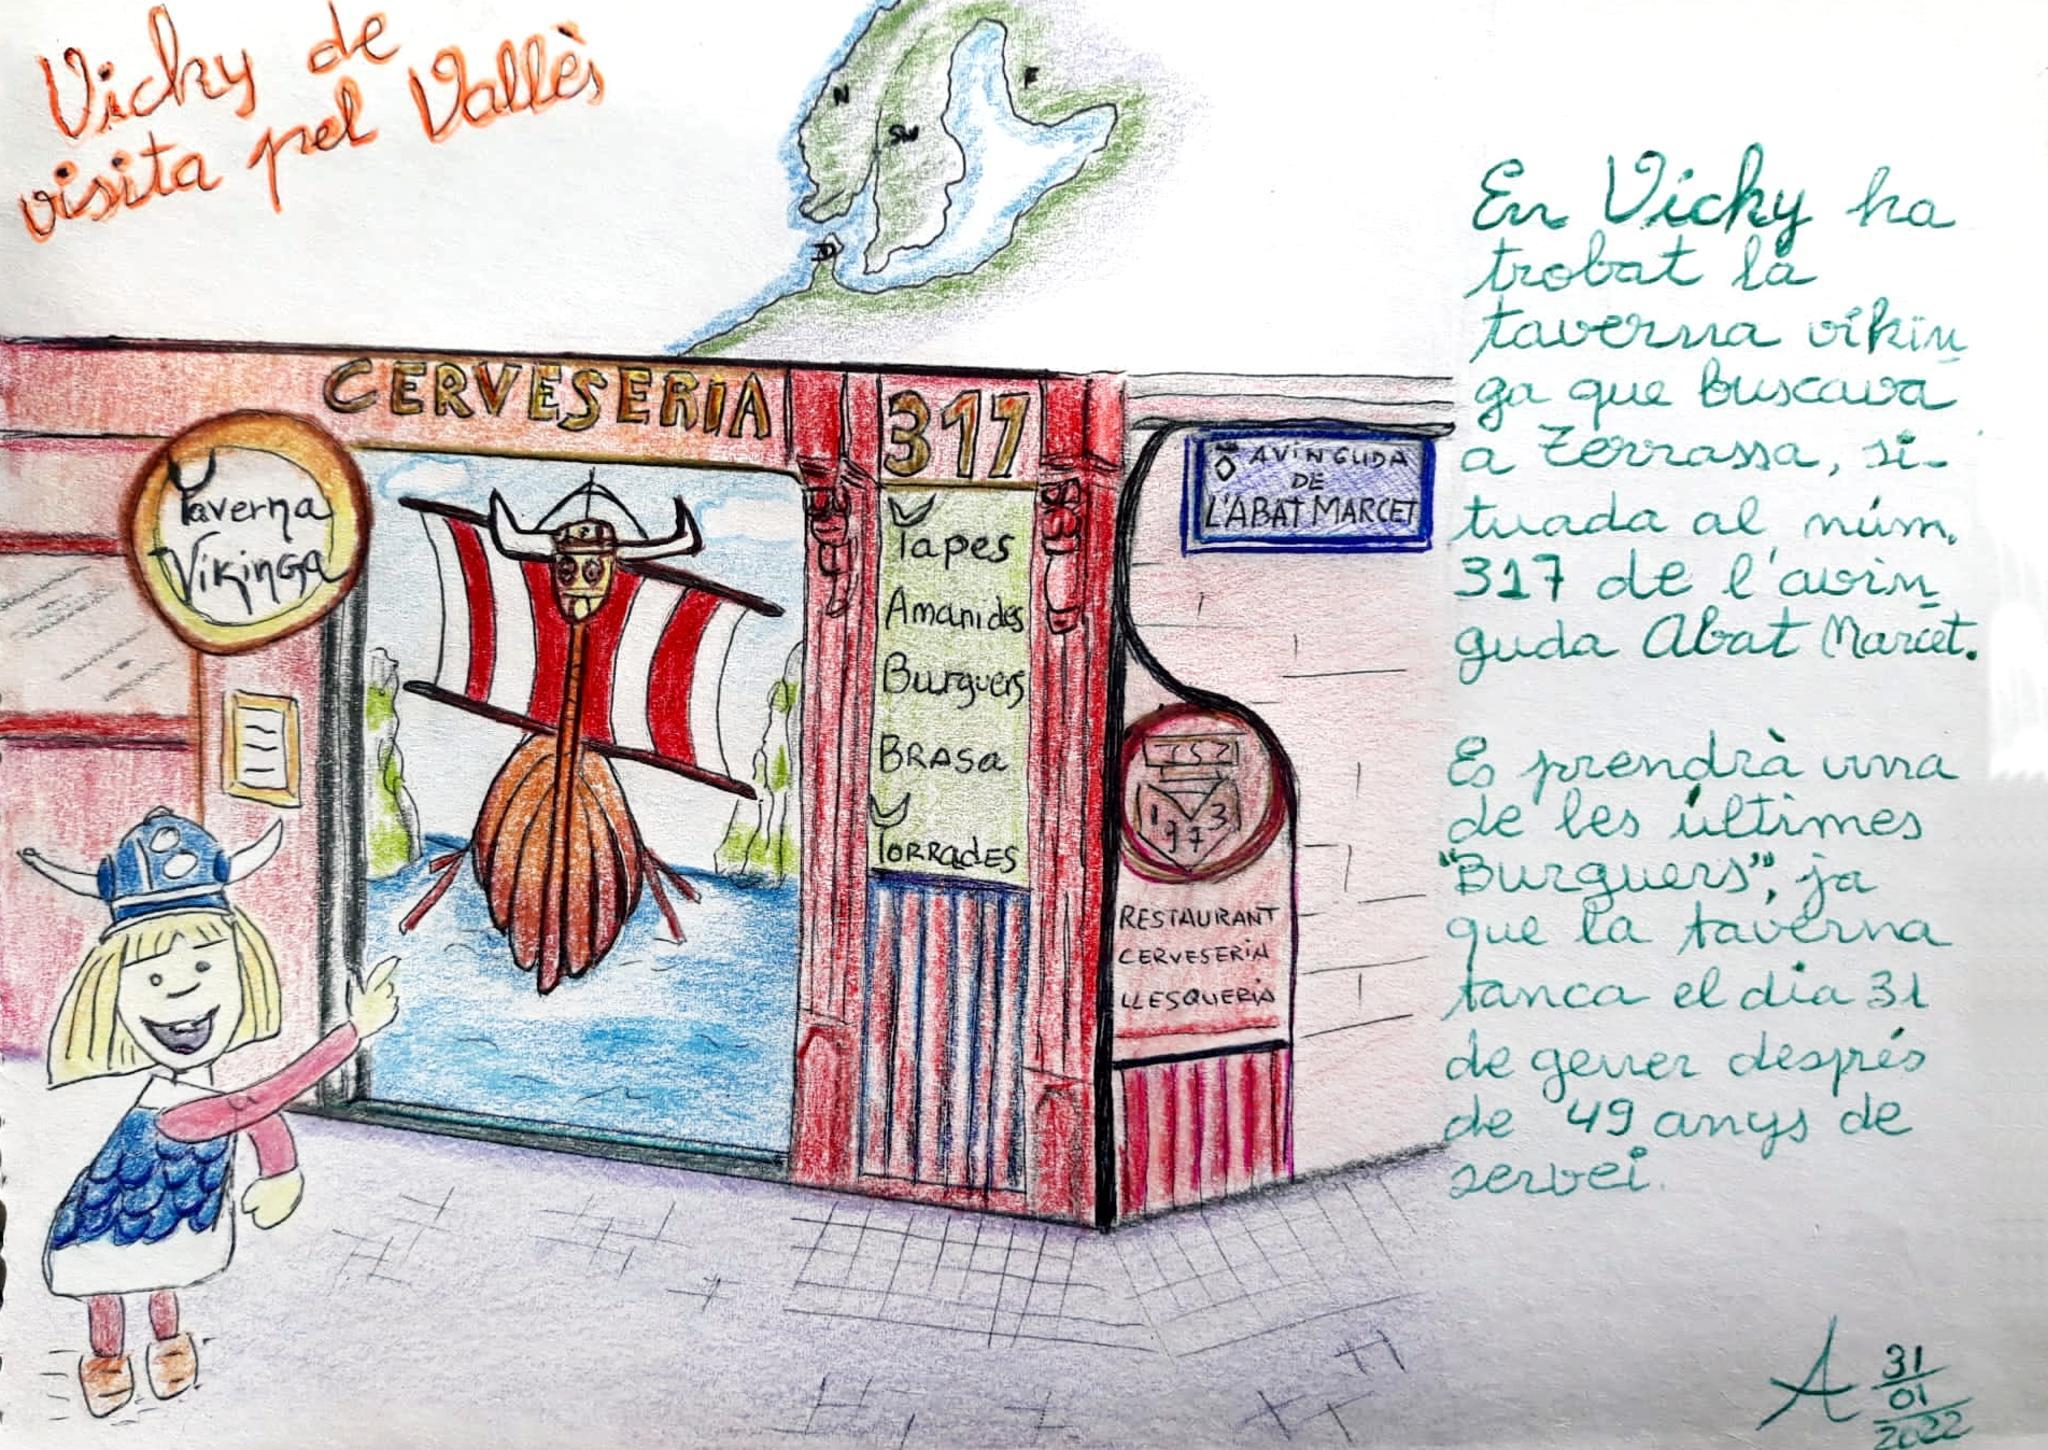 Vicky de
visita pel Vallès
N
SW
F
D
CERVESERIA
317
Taverna
Vikinga
Tapes
Amanides
Burguers
BRASA
TORRADES
AVINGUDA
DE
L'ABAT MARCET
1973
RESTAURANT
CERVESERIA
LLESQUERIA
En Vicky ha
trobat la
taverna vikin
ga que buscava
a Terrassa, si-
tuada al núm.
317 de l'avin
guda Abat Marcet.
Es prendrà una
de les últimes
"Burguers", ja
que la taverna
tanca el dia 31
de gener després
de 49 anys de
servei.
A
31
01
2022